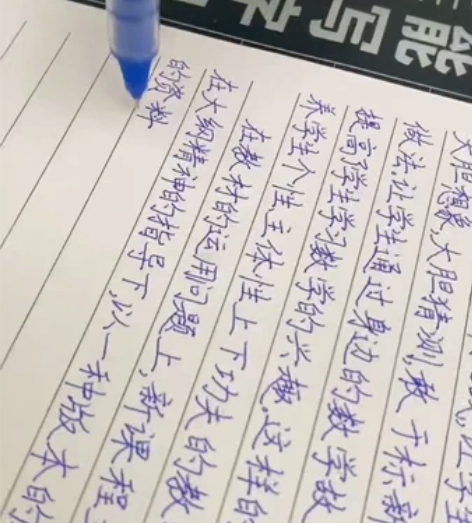 能写字
大胆想象,大胆猜测,敢于标新
做法,让学生通过身边的数学故
提高学生学习数学的兴趣.这样的
养学生个性主体性上下功夫的教
在教材的运用问题上,新课程
在大纲精神的指导下,以一种版本的
的资料